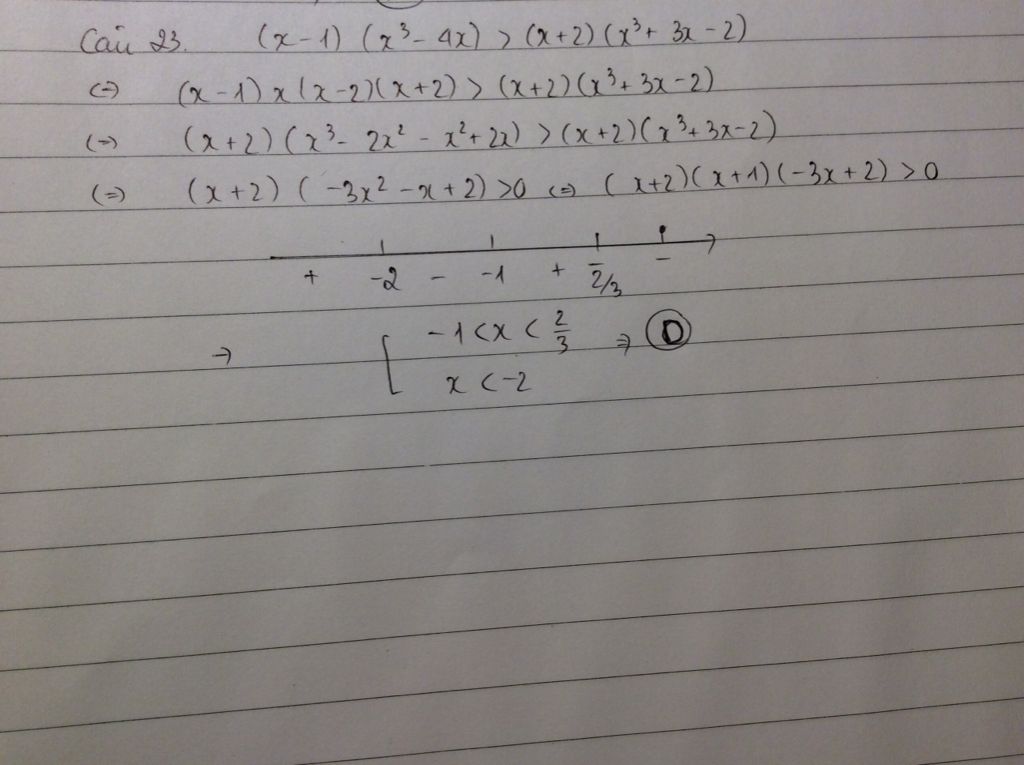 Câu 23. (x-1) (x³- 4x) > (x+2) (x³+ 3x-2)
(=) (x-1) x (x-2)(x+2) > (x+2) (x³+ 3x-2)
(=) (x+2) (x³- 2x² - x²+2x) > (x+2)(x³+3x-2)
(=) (x+2) ( -3x² -x+2) >0 (=) (x+2)(x+1)(-3x+2) >0
+ -2 - -1 + 2/3 -
→ [ -1 <x < 2/3 ⇒ D
x < -2